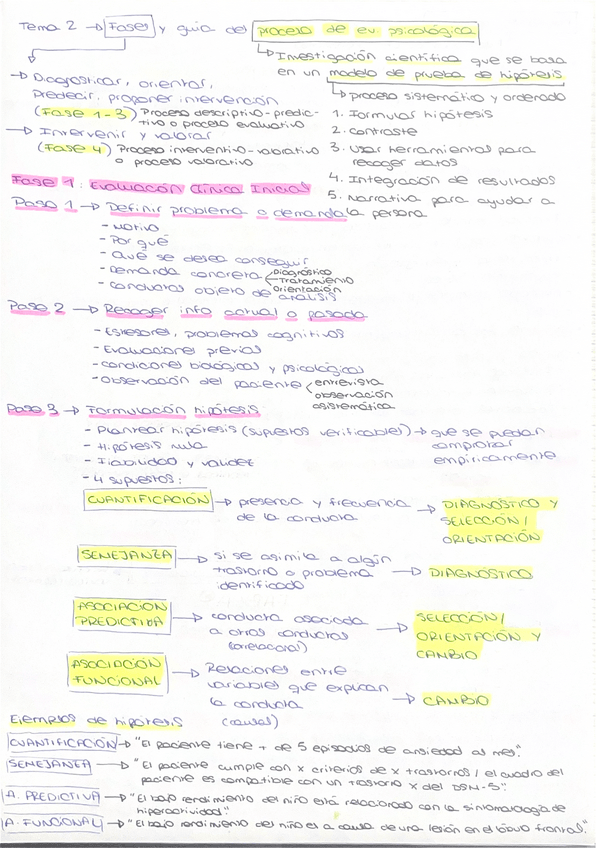 Tema 2 → Fases y guía del proceso de ev psicológica
→ Diagnosticar, orientar,
predecir, proponer intervención
(Fase 1-3) Proceso descriptivo-predic-
tivo o proceso evaluativo
→ Intervenir y valorar
(Fase 4) Proceso interventivo-valorativo
o proceso valorativo
↳ Investigación científica que se basa
en un modelo de prueba de hipótesis
↳ proceso sistemático y ordenado
1. Formular hipótesis
2. contraste
3. Usar herramientas para
recoger datos
4. Integración de resultados
5. Narrativa para ayudar a
la persona
Fase 1: Evaluación Clínica Inicial
Paso 1 → Definir problema o demanda
- Motivo
- Por qué
- Qué se desea conseguir
- Demanda concreta
Diagnóstico
Tratamiento
Orientación
- conductas objeto de análisis
Paso 2 → Recoger info actual o pasada
- Estresores, problemas cognitivos
- Evaluaciones previas
- condiciones biológicas y psicológicas
- Observación del paciente
entrevista
observación
asistemática
Paso 3 → Formulación hipótesis
- Plantear hipótesis (supuestos verificables) → que se puedan
comprobar
empíricamente
- Hipótesis nula
- Fiabilidad y validez
- 4 supuestos:
CUANTIFICACIÓN → presencia y frecuencia
de la conducta
→ DIAGNÓSTICO Y
SELECCIÓN/
ORIENTACIÓN
SEMEJANZA → si se asimila a algún
trastorno o problema
identificado
→ DIAGNÓSTICO
ASOCIACIÓN
PREDICTIVA
→ conducta asociada
a otras conductas
(correlacional)
→ SELECCIÓN/
ORIENTACIÓN Y
CAMBIO
ASOCIACIÓN
FUNCIONAL
→ Relaciones entre
variables que explican
la conducta
(causal)
→ CAMBIO
Ejemplos de hipótesis
CUANTIFICACIÓN → "El paciente tiene + de 5 episodios de ansiedad al mes".
SEMEJANZA → "El paciente cumple con x criterios de x trastornos / el cuadro del
paciente es compatible con un trastorno x del DSM-5".
A. PREDICTIVA → "El bajo rendimiento del niño está relacionado con la sintomatología de
hiperactividad".
A. FUNCIONAL → "El bajo rendimiento del niño es a causa de una lesión en el lóbulo frontal".